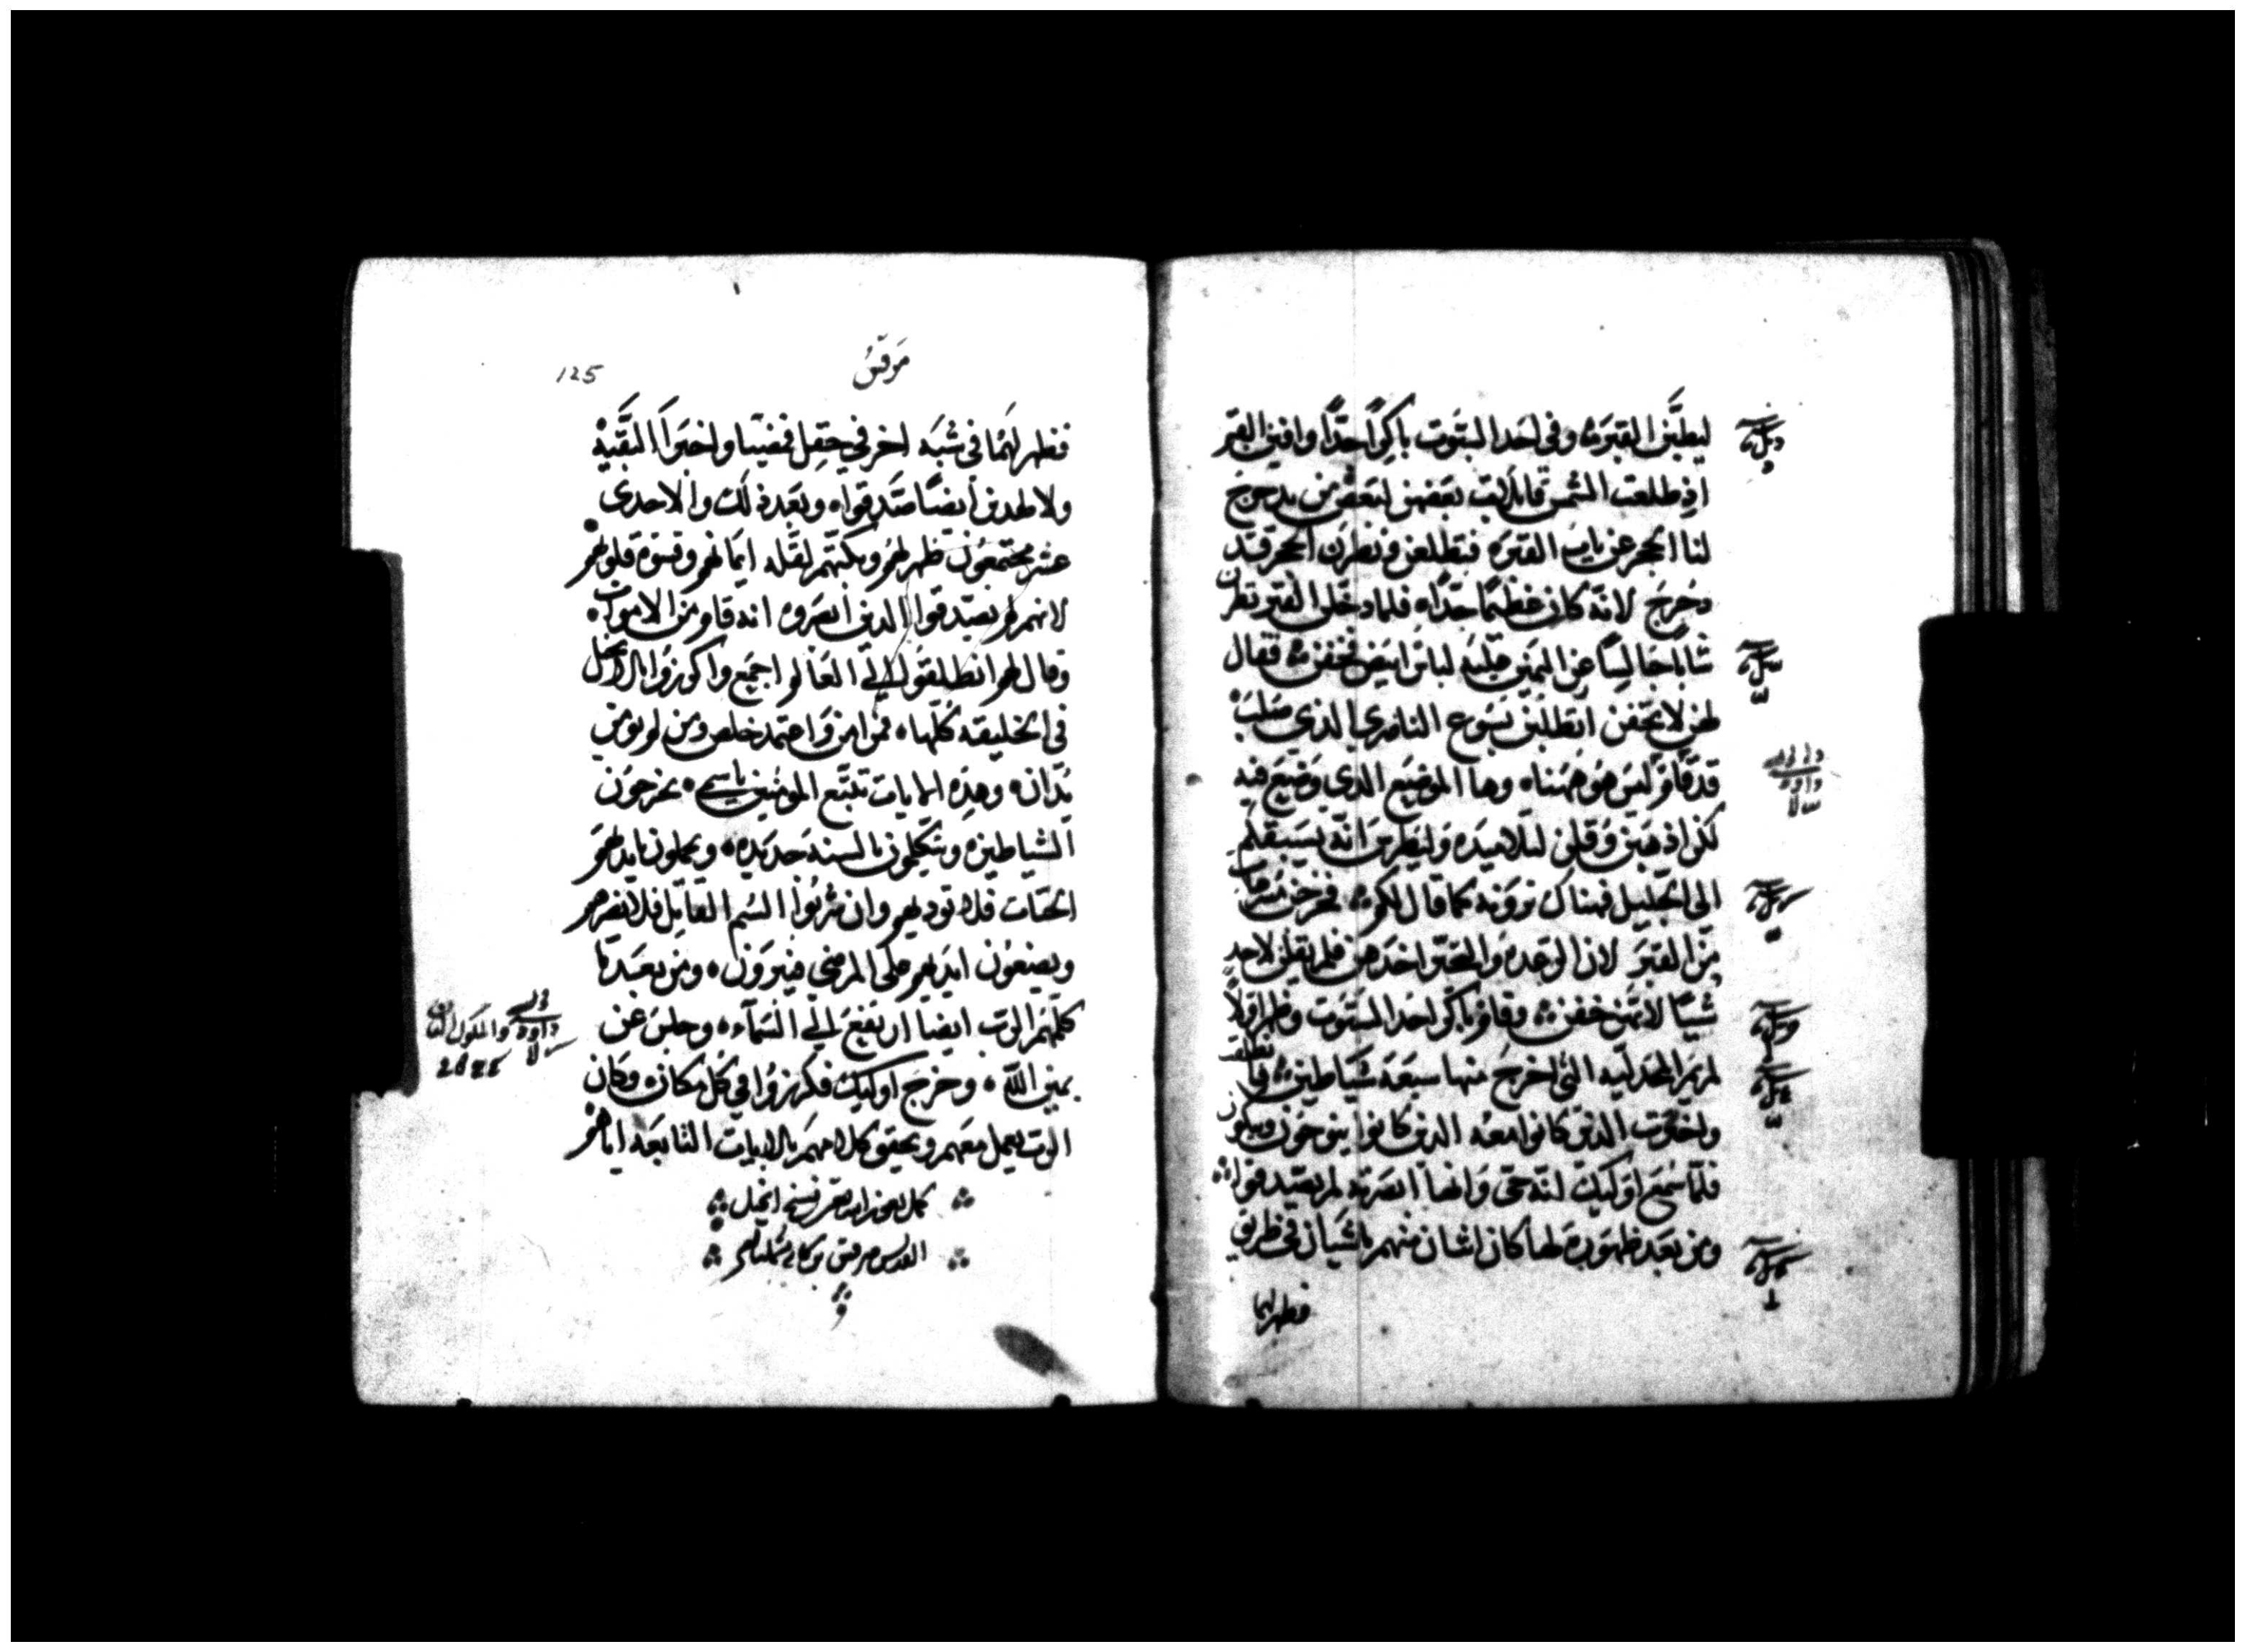 ليطيبن القبره وفي احد السبوت باكرًا جدًا وافين القبر
اذ طلعت الشمس قايلات بعضهن لبعض من يدحرج
لنا الحجر عن باب القبره فتطلعن ونظرن الحجر قد
دحرج لانه كان عظيمًا جدًا فلما دخلن القبر نظرن
شابًا جالسًا عن اليمين عليه لباس ابيض فخفن فقال
لهن لا تخفن اتطلبن يسوع الناصري الذي صلب
قد قام ليس هو ههنا وها الموضع الدي وضع فيه
لكن اذهبن وقلن لتلاميذه ولبطرس انه يسبقكم
الى الجليل فهناك ترونه كما قال لكم فخرجن
من القبر لان الرعده والتحير اخدهن فلم يقلن لاحد
شيًا لانهن خفن وقام باكر احد السبوت وظهر اولًا
لمريم المجدليه التي اخرج منها سبعة شياطين
واخبرت الدين كانوا معه الدين كانوا ينوحون ويبكون
فلما سمع اوليك انه حي وانها ابصرته لم يصدقوا
ومن بعد ظهوره لها كان اثنان منهم ماشيان في طريق
فظهر لهما
مرقس
125
فظهر لهما في شبه اخر في حقل فمضيا واخبرا البقيه
ولا لهدين ايضًا صدقوا وبعد ذلك والاحدى
عشر مجتمعون ظهر لهم وبكتهم لقله ايمانهم وقسوة قلوبهم
لانهم لم يصدقوا الدين ابصروه انه قام من الاموات
وقال لهم انطلقوا الى العالم اجمع واكرزوا بالانجيل
في الخليقه كلها فمن امن واعتمد خلص ومن لم يومن
يدان وهده الايات تتبع المومنين باسمي يخرجون
الشياطين ويتكلمون بالسنه جديده ويحملون بايديهم
الحيات فلا توديهم وان شربوا السم القاتل فلا يضرهم
ويضعون ايديهم على المرضي فيبرون ومن بعد ما
كلمهم الرب ايضا ارتفع الي السماء وجلس عن
يمين الله وخرج اوليك فكرزوا في كل مكان وكان
الرب يعمل معهم ويحقق كلامهم بالايات التابعه اياهم
كمل بعون الله نسخ انجيل
القديس مرقس